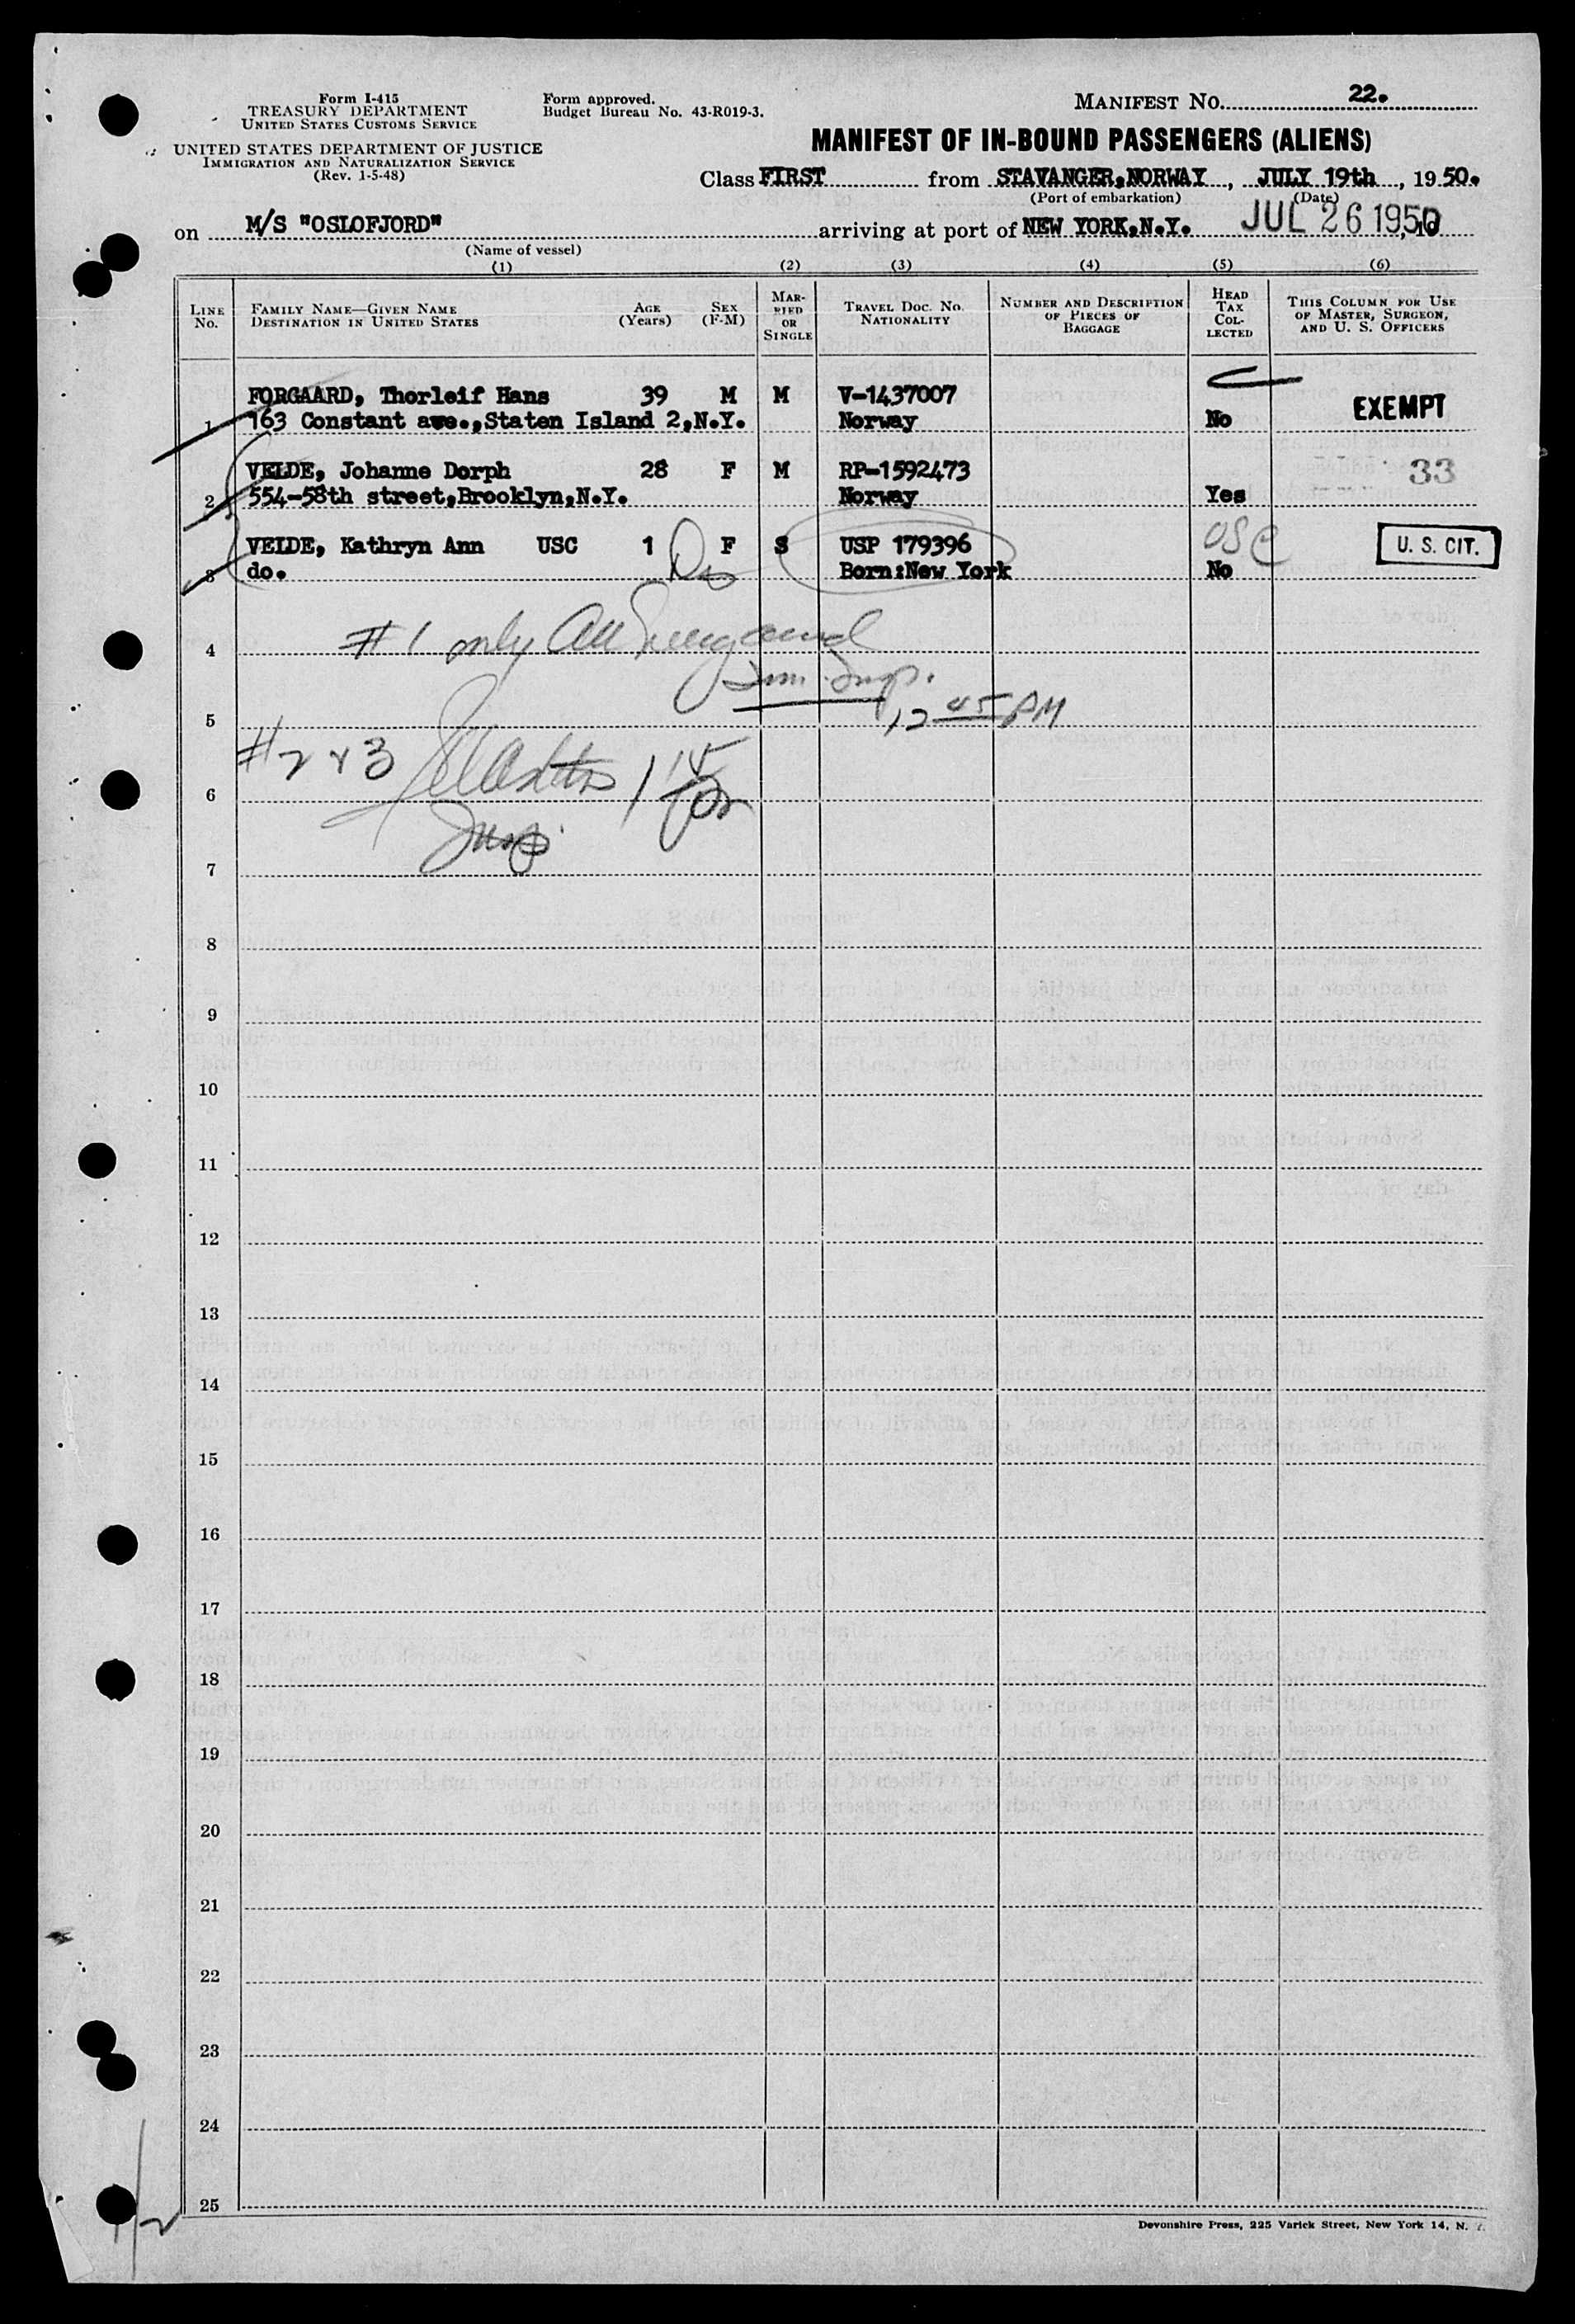 Form I-415
TREASURY DEPARTMENT
UNITED STATES CUSTOMS SERVICE
UNITED STATES DEPARTMENT OF JUSTICE
IMMIGRATION AND NATURALIZATION SERVICE
(Rev. 1-5-48)
Form approved.
Budget Bureau No. 43-R019-3.
MANIFEST NO. 22.
MANIFEST OF IN-BOUND PASSENGERS (ALIENS)
Class FIRST from STAVANGER, NORWAY, JULY 19th, 1950.
(Port of embarkation) (Date)
on M/S "OSLOFJORD" arriving at port of NEW YORK, N.Y. JUL 26 1950
(Name of vessel)
(1) (2) (3) (4) (5) (6)
LINE No. FAMILY NAME—GIVEN NAME DESTINATION IN UNITED STATES AGE (Years) SEX (F-M) MARRIED OR SINGLE TRAVEL DOC. NO. NATIONALITY NUMBER AND DESCRIPTION OF PIECES OF BAGGAGE HEAD TAX COLLECTED THIS COLUMN FOR USE OF MASTER, SURGEON, AND U. S. OFFICERS
FORGAARD, Thorleif Hans 39 M M V-1437007 EXEMPT
1 163 Constant ave., Staten Island 2, N.Y. Norway No
VELDE, Johanne Dorph 28 F M RP-1592473 33
2 554-58th street, Brooklyn, N.Y. Norway Yes
VELDE, Kathryn Ann USC 1 F S USP 179396 USC U. S. CIT.
3 do. Born: New York No
4 #1 only
Imm. Insp.
5 12 45 PM
#2 & 3 1 15
6
Insp.
7
8
9
10
11
12
13
14
15
16
17
18
19
20
21
22
23
24
25
Devonshire Press, 225 Varick Street, New York 14, N. Y.